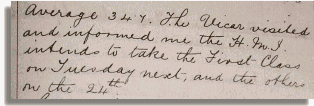 Average 347. The Vicar visited
and informed me the H.M.I.
intends to take the First Class
on Tuesday next, and the others
on the 24th